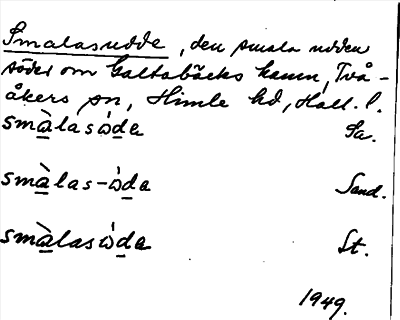 Smalasudde, den smala udden
söder om Galtabäcks hamn, Två-
åkers sn, Himle hd, Hall. l.
smàlasòde Sa.
smàlas-òde Sand.
smàlasòde St.
1949.